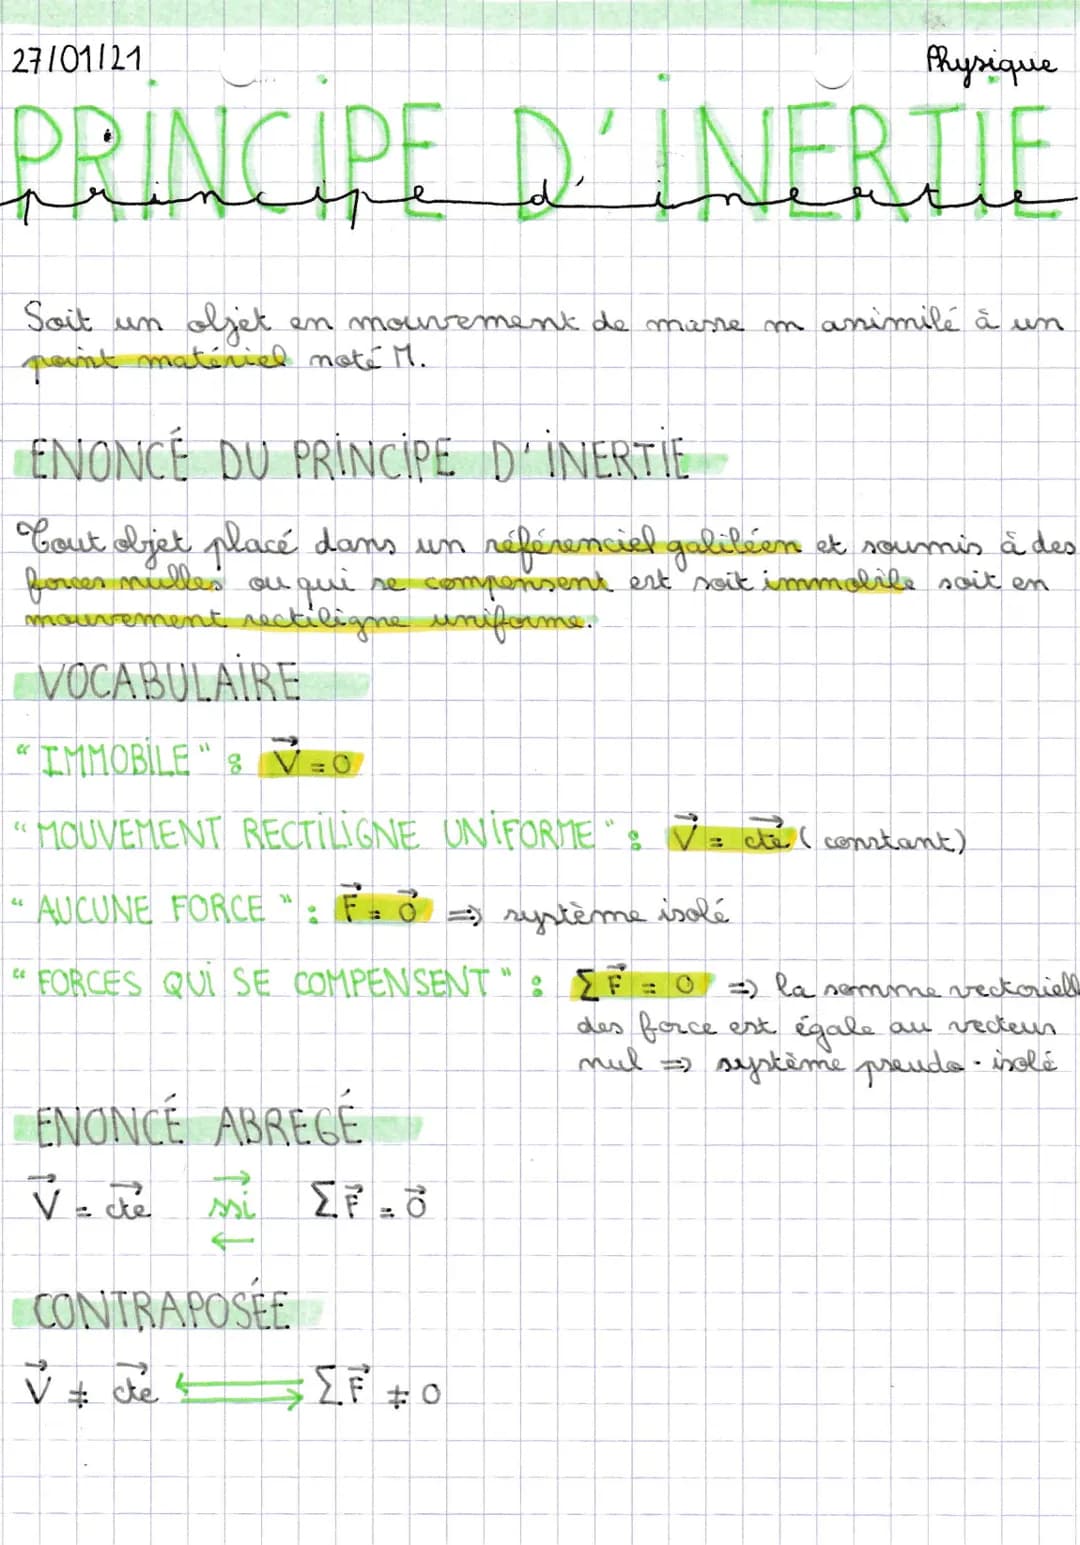 27/01/21
Physique
PRINCIPE D'INERTIE
principe d'inertie
Soit un objet en mouvement de masse m assimilé à un
point matériel noté M.
ENONCÉ DU PRINCIPE D'INERTIE
Tout objet placé dans un référenciel galiléen et soumis à des
forces nulles ou qui se compensent est soit immobile soit en
mouvement rectiligne uniforme.
VOCABULAIRE
"IMMOBILE" : V⃗ = 0
"MOUVEMENT RECTILIGNE UNIFORME" : V⃗ = c⃗te (constant)
"AUCUNE FORCE" : F⃗ = 0⃗ => système isolé
"FORCES QUI SE COMPENSENT" : ∑F⃗ = 0 => la somme vectoriell
des force est égale au vecteur
nul => système pseudo-isolé
ENONCÉ ABREGÉ
V⃗ = c⃗te ssi ∑F⃗ = 0⃗
CONTRAPOSÉE
V⃗ ≠ c⃗te ⇆ ∑F⃗ ≠ 0